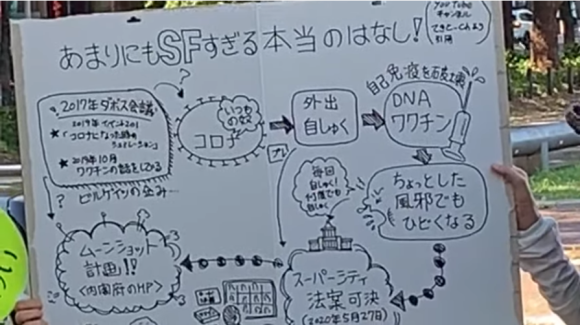 あまりにもSFすぎる本当のはなし!
You Tube
チャンネル
引用
2017年ダボス会議
「コロナになった時の
シュミレーション」
★2019年10月
ワクチンの話をしてる
?
ビルゲイツの企み…
?
いつもの
コロナ
外出
自しゅく
自己免疫を破壊
DNA
ワクチン
ちょっとした
風邪でも
ひどくなる
毎回
自しゅく!
スーパーシティ
法案可決
(2020年5月27日)
ムーンショット
計画!!
<内閣府のHP>